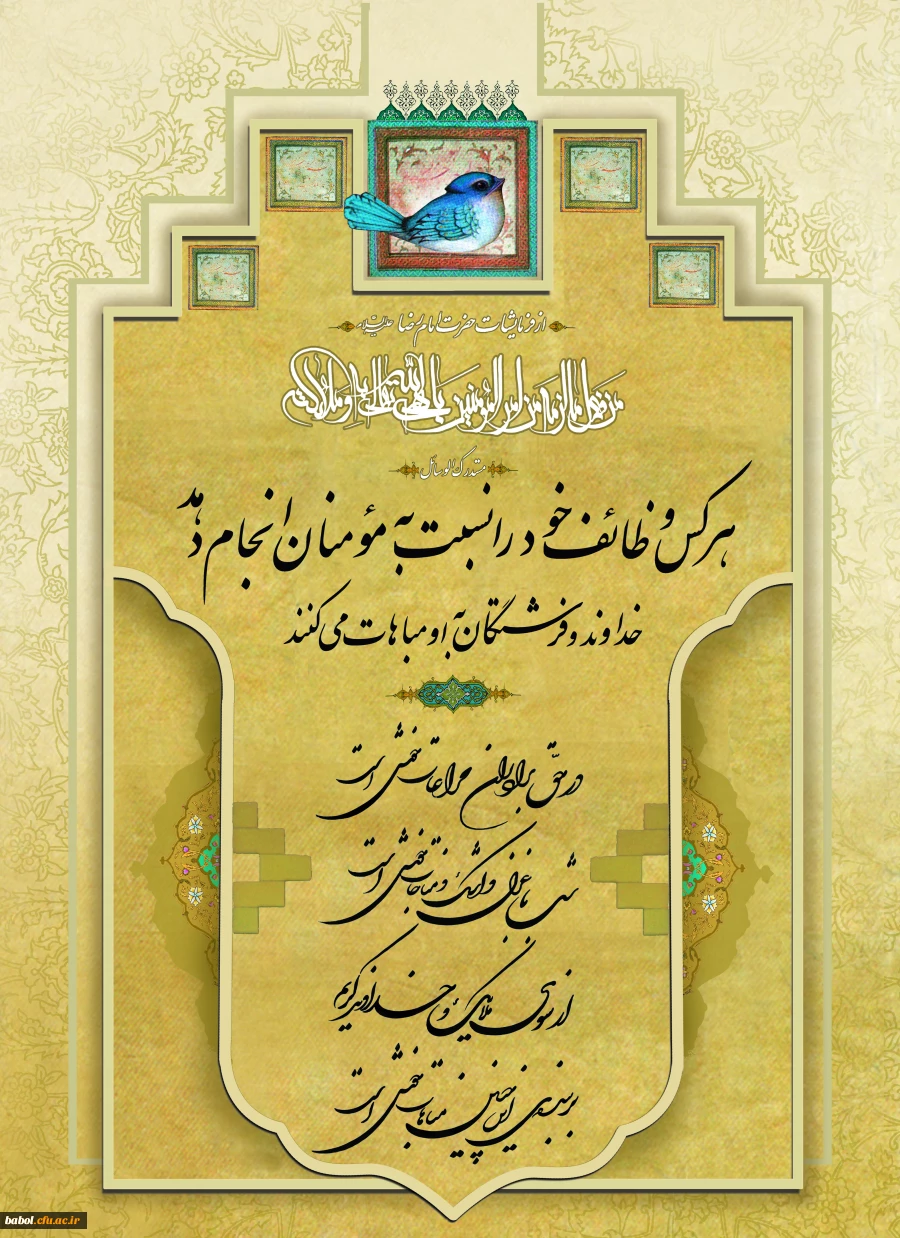 از فرمایشات حضرت امام رضا علیه السلام
من فعل ما لزمه من امر المؤمنین باهی الله تعالی به ملائکته
مستدرک الوسائل
هرکس وظائف خود را نسبت به مؤمنان انجام دهد
خداوند و فرشتگان به او مباهات می‌کنند
در حقّ برادران مراعات خوش است
شب با غزل و اشک و مناجات خوش است
از سوی ملائک و خداوند کریم
بر بنده‌ی این چنین مباهات خوش است
babol.cfu.ac.ir